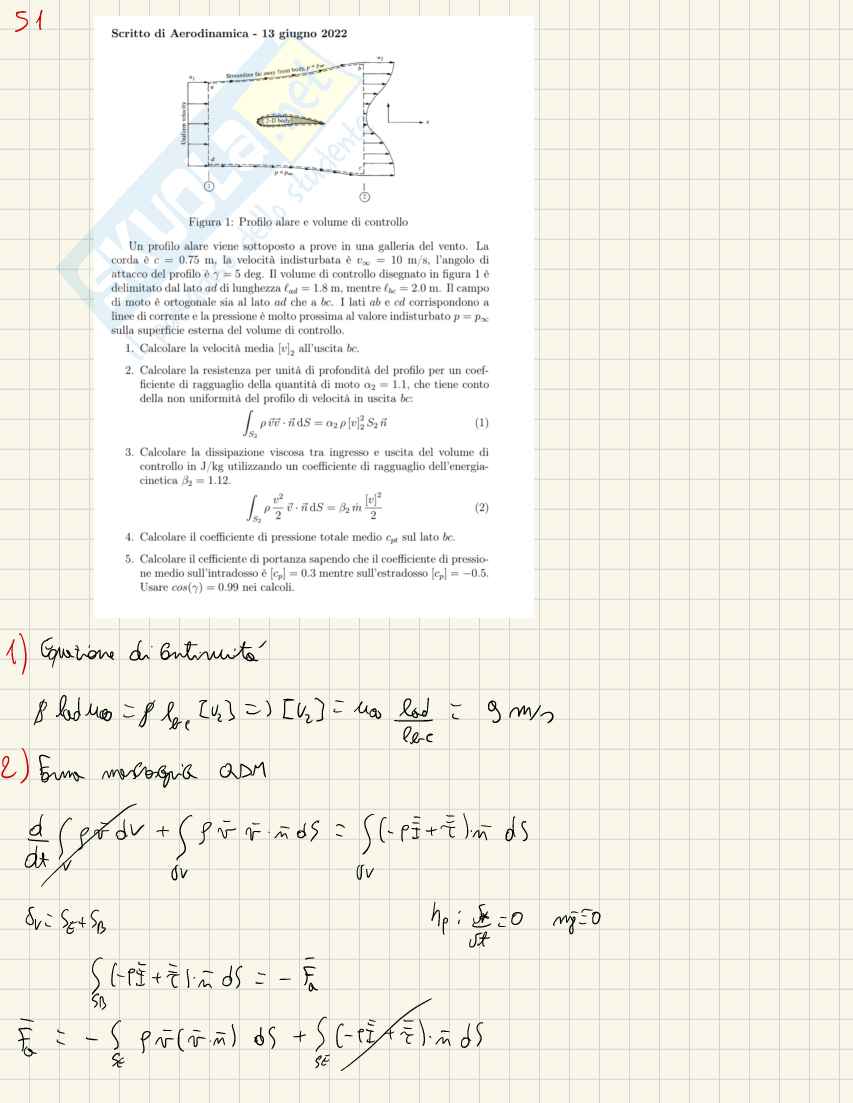 S1
Scritto di Aerodinamica - 13 giugno 2022
Streamline far away from body, p ≈ p∞
Uniform velocity
2-D body
p ≈ p∞
Figura 1: Profilo alare e volume di controllo
Un profilo alare viene sottoposto a prove in una galleria del vento. La
corda è c = 0.75 m, la velocità indisturbata è v∞ = 10 m/s, l'angolo di
attacco del profilo è γ = 5 deg. Il volume di controllo disegnato in figura 1 è
delimitato dal lato ad di lunghezza ℓad = 1.8 m, mentre ℓbc = 2.0 m. Il campo
di moto è ortogonale sia al lato ad che a bc. I lati ab e cd corrispondono a
linee di corrente e la pressione è molto prossima al valore indisturbato p = p∞
sulla superficie esterna del volume di controllo.
1. Calcolare la velocità media [v]2 all'uscita bc.
2. Calcolare la resistenza per unità di profondità del profilo per un coef-
ficiente di ragguaglio della quantità di moto α2 = 1.1, che tiene conto
della non uniformità del profilo di velocità in uscita bc:
∫S2 ρ v⃗v⃗ · n⃗ dS = α2 ρ [v]2² S2 n⃗ (1)
3. Calcolare la dissipazione viscosa tra ingresso e uscita del volume di
controllo in J/kg utilizzando un coefficiente di ragguaglio dell'energia-
cinetica β2 = 1.12.
∫S2 ρ v²/2 v⃗ · n⃗ dS = β2 ṁ [v]²/2 (2)
4. Calcolare il coefficiente di pressione totale medio cpt sul lato bc.
5. Calcolare il cefficiente di portanza sapendo che il coefficiente di pressio-
ne medio sull'intradosso è [cp] = 0.3 mentre sull'estradosso [cp] = −0.5.
Usare cos(γ) = 0.99 nei calcoli.
1) Equazione di Continuità
ρ lad u∞ = ρ lbc [v2] => [v2] = u∞ lad/lbc = 9 m/s
2) Forma QDM
d/dt ∫V ρ v̄ dV + ∫∂V ρ v̄ v̄ · n̄ dS = ∫∂V (-pĪ + τ̄) · n̄ dS
∂V = SE + SB hp : ∂/∂t = 0 mḡ = 0
∫SB (-pĪ + τ̄) · n̄ dS = - F̄a
F̄a = - ∫SE ρ v̄ (v̄ · n̄) dS + ∫SE (-pĪ + τ̄) · n̄ dS